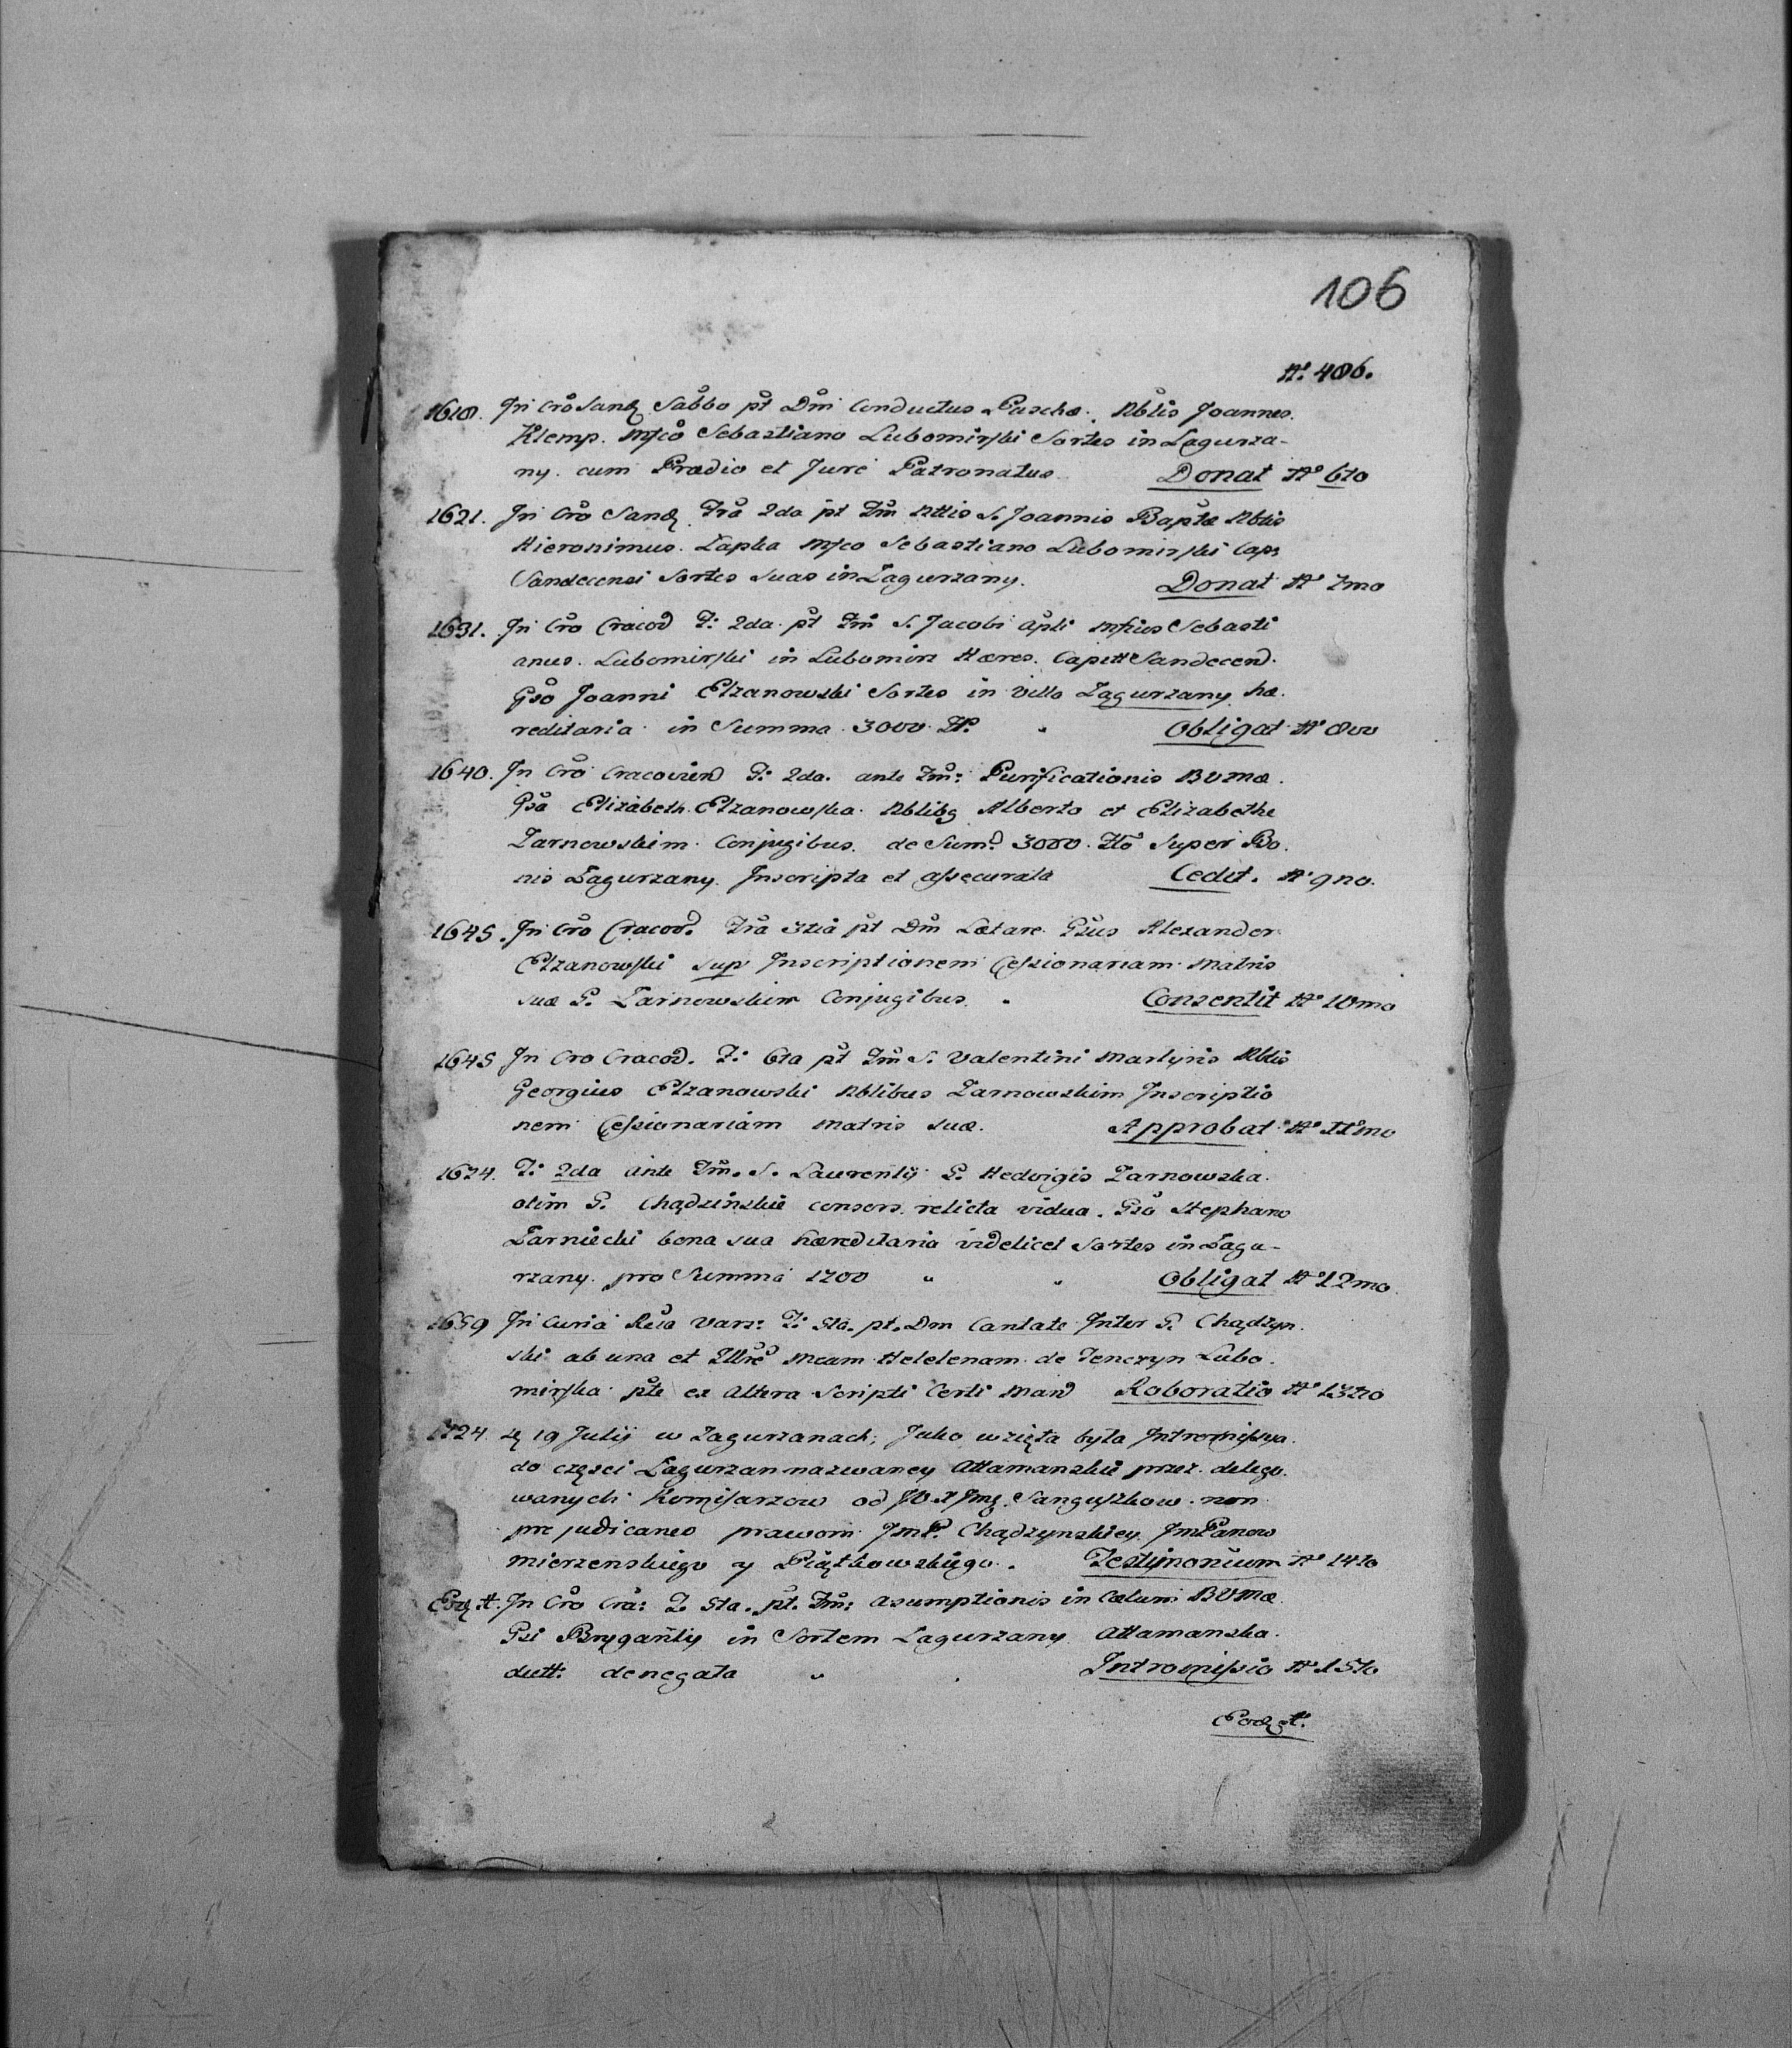 106
No. 406.
1618. In Cro Sand Sabbo pt Dm Conductus Paschæ. Nblis Joannes.
Klemp. Mfco Sebastiano Lubomirski Sortes in Zagurza-
ny. cum Prædio et Jure Patronatus. Donat No 6to
1621. In Cro Sand Fra 2da pt Fm Nttis S. Joannis Baptæ Nblis
Hieronimus. Łapka Mfco Sebastiano Lubomirski Cap
Sandecensi Sortes suas in Zagurzany. Donat No 7mo
1631. In Cro Cracov F: 2da pt Fm S. Jacobi Apli Mficus Sebasti
anus. Lubomirski in Lubomirz Hæres. Capitt Sandecen.
Gso Joanni Elzanowski Sortes in Villa Zagurzany hæ.
reditaria in Summa 3000 Zł. " Obligat No 8vo
1640. In Cro Cracovien F: 2da. ante Fm: Purificationis BVMæ.
Gsa Elizabeth. Elzanowska Nblibg Alberto et Elizabethæ
Zarnowskim Conjugibus. de Sum. 3000. Zło Super Bo.
nis Zagurzany. Inscripta et assecurata Cedit. No 9no.
1645. In Cro Cracov. Fra 3tia pt Dm Lætare. Gsus Alexander
Elzanowski sup Inscriptionem Cessionariam Matris
suæ G. Zarnowskim Conjugibus. " Consentit No 10mo
1645 In Cro Cracov. F: 6ta pt Fm S. Valentini Martyris Nblis
Georgius Elzanowski Nblibus Zarnowskim Inscriptio
nem Cessionariam Matris suæ. Approbat No 11mo
1674. F: 2da ante Fm. S. Laurentij G. Hedvigis Zarnowska.
olim G. Chądzińskie consors. relicta vidua. Gso Stephano
Zarniecki bona sua hæreditaria videlicet Sortes in Zagu-
rzany. pro Summa 1700 " " Obligat No 12mo.
1659 In Curia Rea Vars: F: 5ta. pt. Dm Cantate Inter G. Chądzyn.
ski ab una et Illre Mcam Helelenam de Tenczyn Lubo.
mirska pte ex altera Scripti Certi Man Roboratio No 13tio
1724 19 Julij w Zagurzanach, Jako wzięta była Intromissya.
do części Zagurzan nazwaney Attamanskie przez. delego.
wanych Komisarzow od Sanguszkow. non
præjudicando prawom JmP. Chądzynskiey JmPanow
Mierzenskiego y Piątkowskiego. Testimonium No 14to
In Cro Cra: F. 5ta. pt. Fm: Asumptionis in Cælum BVMæ
Gsi Brygantij in Sortem Zagurzany Attamanska.
dutt: denegata " . Intromissio No 15to